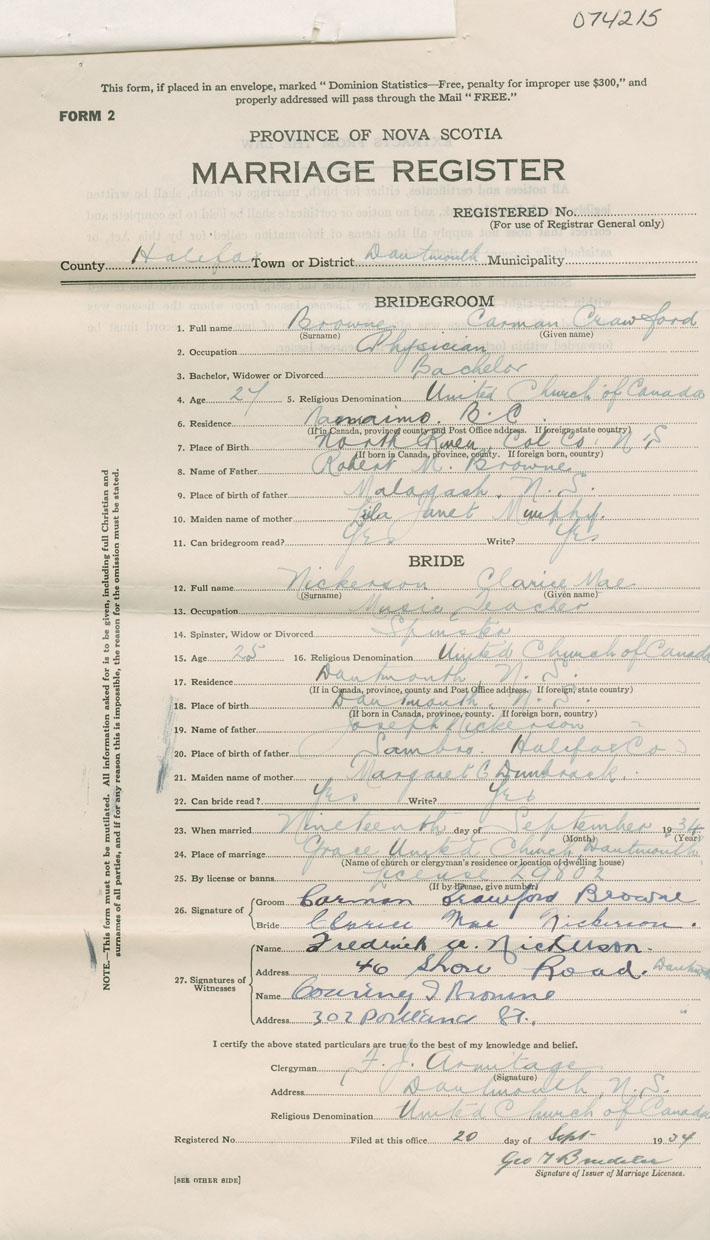 074215
This form, if placed in an envelope, marked " Dominion Statistics—Free, penalty for improper use $300," and
properly addressed will pass through the Mail " FREE."
FORM 2
PROVINCE OF NOVA SCOTIA
MARRIAGE REGISTER
REGISTERED No.
(For use of Registrar General only)
County Halifax Town or District Dartmouth Municipality
BRIDEGROOM
1. Full name Browne Carman Crawford
(Surname) (Given name)
2. Occupation Physician
3. Bachelor, Widower or Divorced Bachelor
4. Age 27 5. Religious Denomination United Church of Canada
6. Residence Nanaimo. B.C.
(If in Canada, province, county and Post Office address. If foreign, state country)
7. Place of Birth North River, Col. Co. N.S
(If born in Canada, province, county. If foreign born, country)
8. Name of Father Robert M. Browne
9. Place of birth of father Malagash, N.S.
10. Maiden name of mother Lila Janet Murphy.
11. Can bridegroom read? Yes Write? Yes
BRIDE
12. Full name Nickerson Clarice Mae
(Surname) (Given name)
13. Occupation Music Teacher
14. Spinster, Widow or Divorced Spinster
15. Age 25 16. Religious Denomination United Church of Canada
17. Residence Dartmouth, N.S.
(If in Canada, province, county and Post Office address. If foreign, state country)
18. Place of birth Dartmouth, N.S.
(If born in Canada, province, county. If foreign born, country)
19. Name of father Joseph Nickerson
20. Place of birth of father Sambro, Halifax Co
21. Maiden name of mother Margaret C Dumbrack.
22. Can bride read? Yes Write? Yes
23. When married Nineteenth day of September 1934
(Month) (Year)
24. Place of marriage Grace United Church, Dartmouth
(Name of church or clergyman's residence or location of dwelling house)
25. By license or banns License 29802
(If by license, give number)
26. Signature of
Groom Carman Crawford Browne
Bride Clarice Mae Nickerson.
27. Signatures of Witnesses
Name Frederick A. Nickerson.
Address 46 Shore Road. Dartmouth
Name Courtney I Browne
Address 302 Portland St., "
I certify the above stated particulars are true to the best of my knowledge and belief.
Clergyman F. J. Armitage
(Signature)
Address Dartmouth, N.S.
Religious Denomination United Church of Canada
Registered No. Filed at this office 20 day of Sept 1934
Geo
Signature of Issuer of Marriage Licenses.
[SEE OTHER SIDE]
NOTE.—This form must not be mutilated. All information asked for is to be given, including full Christian and
surnames of all parties, and if for any reason this is impossible, the reason for the omission must be stated.